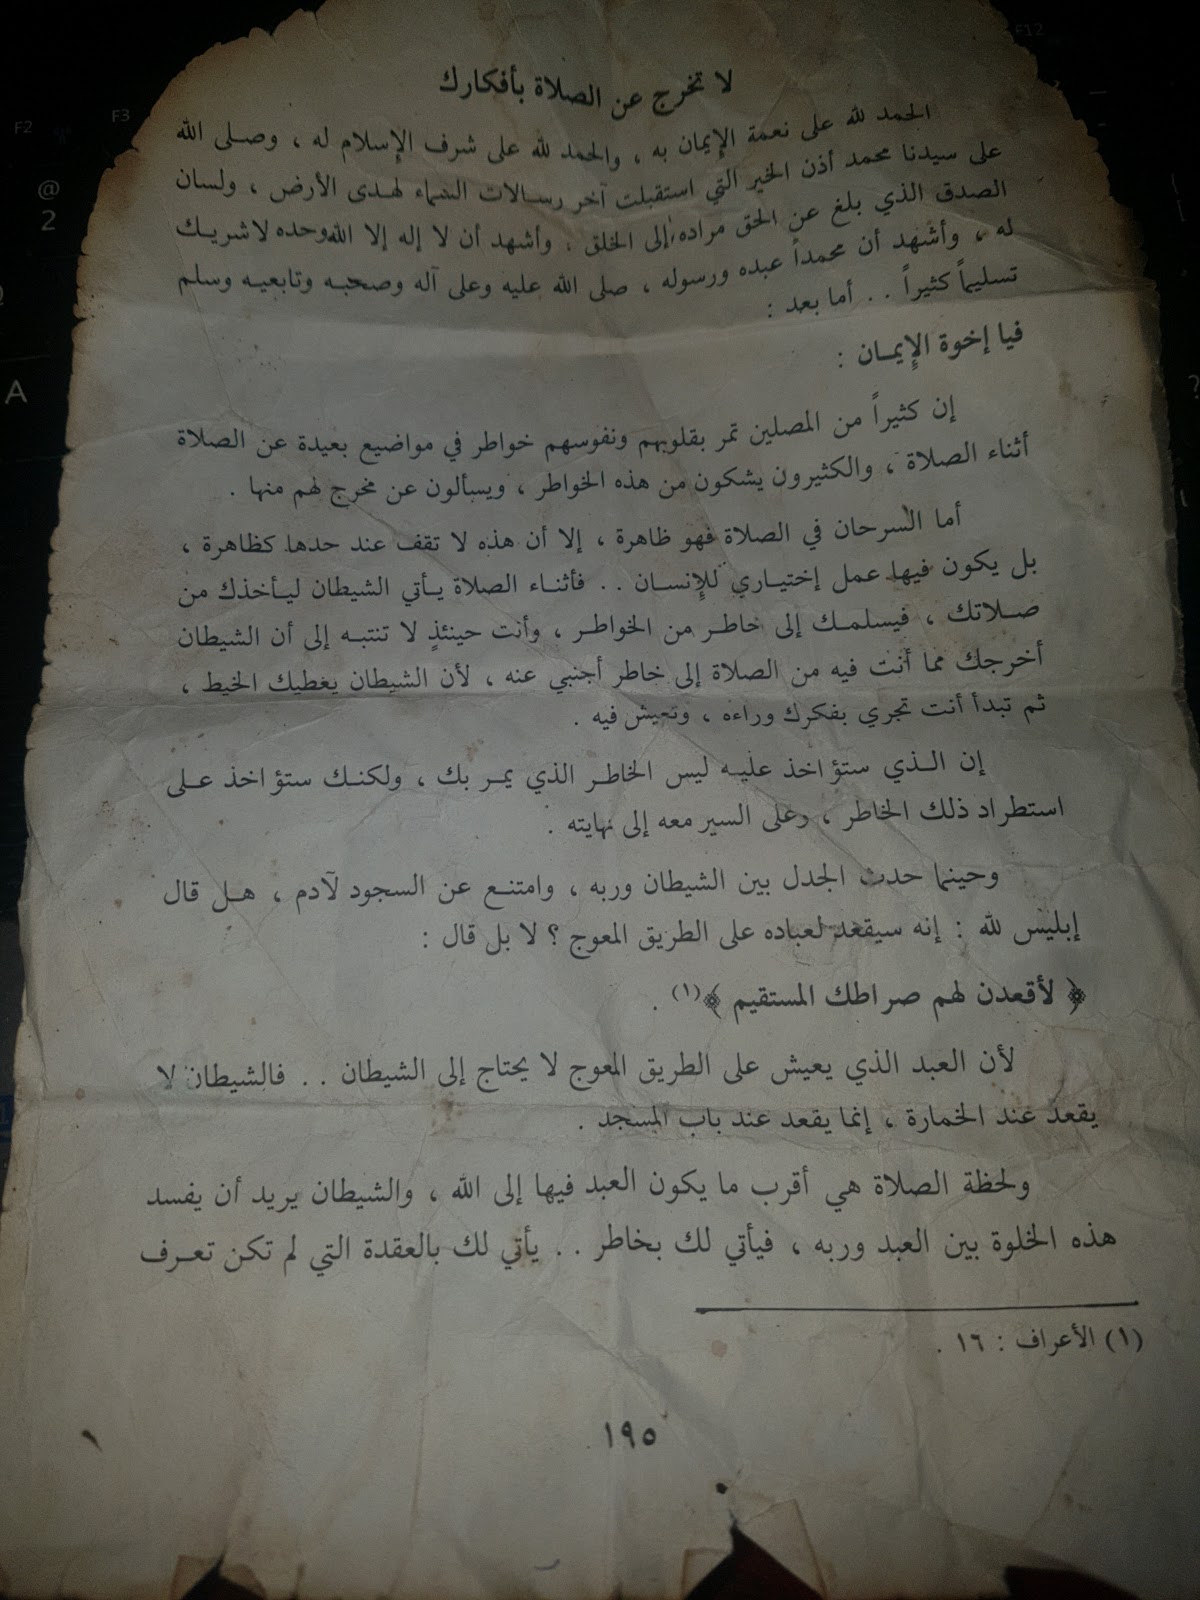 لا تخرج عن الصلاة بأفكارك
الحمد لله على نعمة الإيمان به ، والحمد لله على شرف الإسلام له ، وصلى الله
على سيدنا محمد أذن الخير التي استقبلت آخر رسالات السماء لهدى الأرض ، ولسان
الصدق الذي بلغ عن الحق مراده إلى الخلق . وأشهد أن لا إله إلا الله وحده لا شريك
له ، وأشهد أن محمداً عبده ورسوله ، صلى الله عليه وعلى آله وصحبه وتابعيه وسلم
تسليماً كثيراً . . أما بعد :
فيا إخوة الإيمان :
إن كثيراً من المصلين تمر بقلوبهم ونفوسهم خواطر في مواضيع بعيدة عن الصلاة
أثناء الصلاة ، والكثيرون يشكون من هذه الخواطر ، ويسألون عن مخرج لهم منها .
أما السرحان في الصلاة فهو ظاهرة ، إلا أن هذه لا تقف عند حدها كظاهرة ،
بل يكون فيها عمل إختياري للإنسان . . فأثناء الصلاة يأتي الشيطان ليأخذك من
صلاتك ، فيسلمك إلى خاطر من الخواطر ، وأنت حينئذٍ لا تنتبه إلى أن الشيطان
أخرجك مما أنت فيه من الصلاة إلى خاطر أجنبي عنه ، لأن الشيطان يعطيك الخيط ،
ثم تبدأ أنت تجري بفكرك وراءه ، وتعيش فيه .
إن الذي ستؤاخذ عليه ليس الخاطر الذي يمر بك ، ولكنك ستؤاخذ على
استطراد ذلك الخاطر ، وعلى السير معه إلى نهايته .
وحينما حدث الجدل بين الشيطان وربه ، وامتنع عن السجود لآدم ، هل قال
إبليس لله : إنه سيقعد لعباده على الطريق المعوج ؟ لا بل قال :
﴿ لأقعدن لهم صراطك المستقيم ﴾(١) .
لأن العبد الذي يعيش على الطريق المعوج لا يحتاج إلى الشيطان . . فالشيطان لا
يقعد عند الخمارة ، إنما يقعد عند باب المسجد .
ولحظة الصلاة هي أقرب ما يكون العبد فيها إلى الله ، والشيطان يريد أن يفسد
هذه الخلوة بين العبد وربه ، فيأتي لك بخاطر . . يأتي لك بالعقدة التي لم تكن تعرف
(١) الأعراف : ١٦ .
١٩٥
F2
F3
F12
@
2
A
?